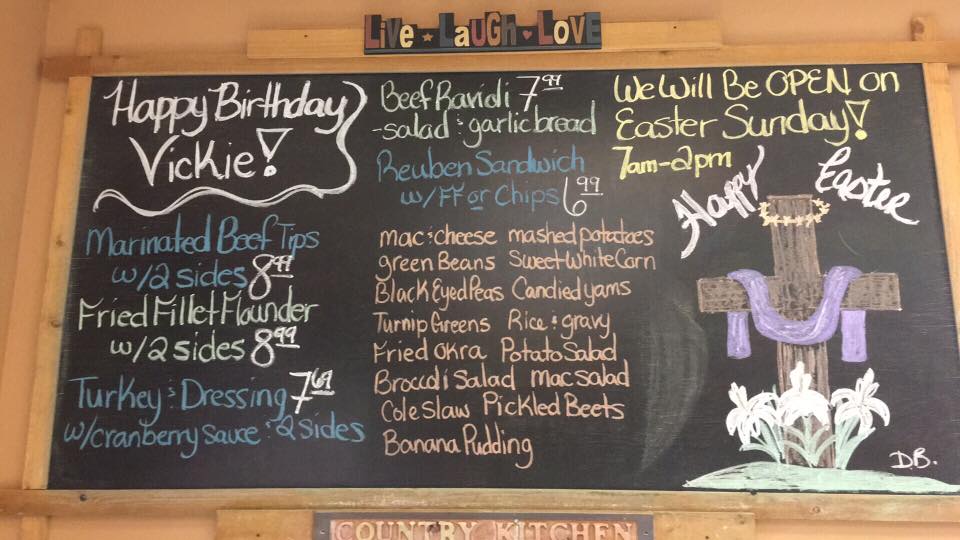 Live ★ Laugh ♥ Love
Happy Birthday
Vickie!
Marinated Beef Tips
w/2 sides 8.99
Fried Fillet Flounder
w/2 sides 8.99
Turkey & Dressing 7.69
w/cranberry sauce & 2 sides
Beef Ravioli 7.99
-salad & garlic bread
Reuben Sandwich
w/FF or Chips 6.99
mac & cheese mashed potatoes
green Beans Sweet White Corn
Black Eyed Peas Candied yams
Turnip Greens Rice & gravy
Fried Okra Potato Salad
Broccoli Salad mac salad
Cole Slaw Pickled Beets
Banana Pudding
We Will Be OPEN on
Easter Sunday!
7am-2pm
Happy Easter
D.B.
COUNTRY KITCHEN